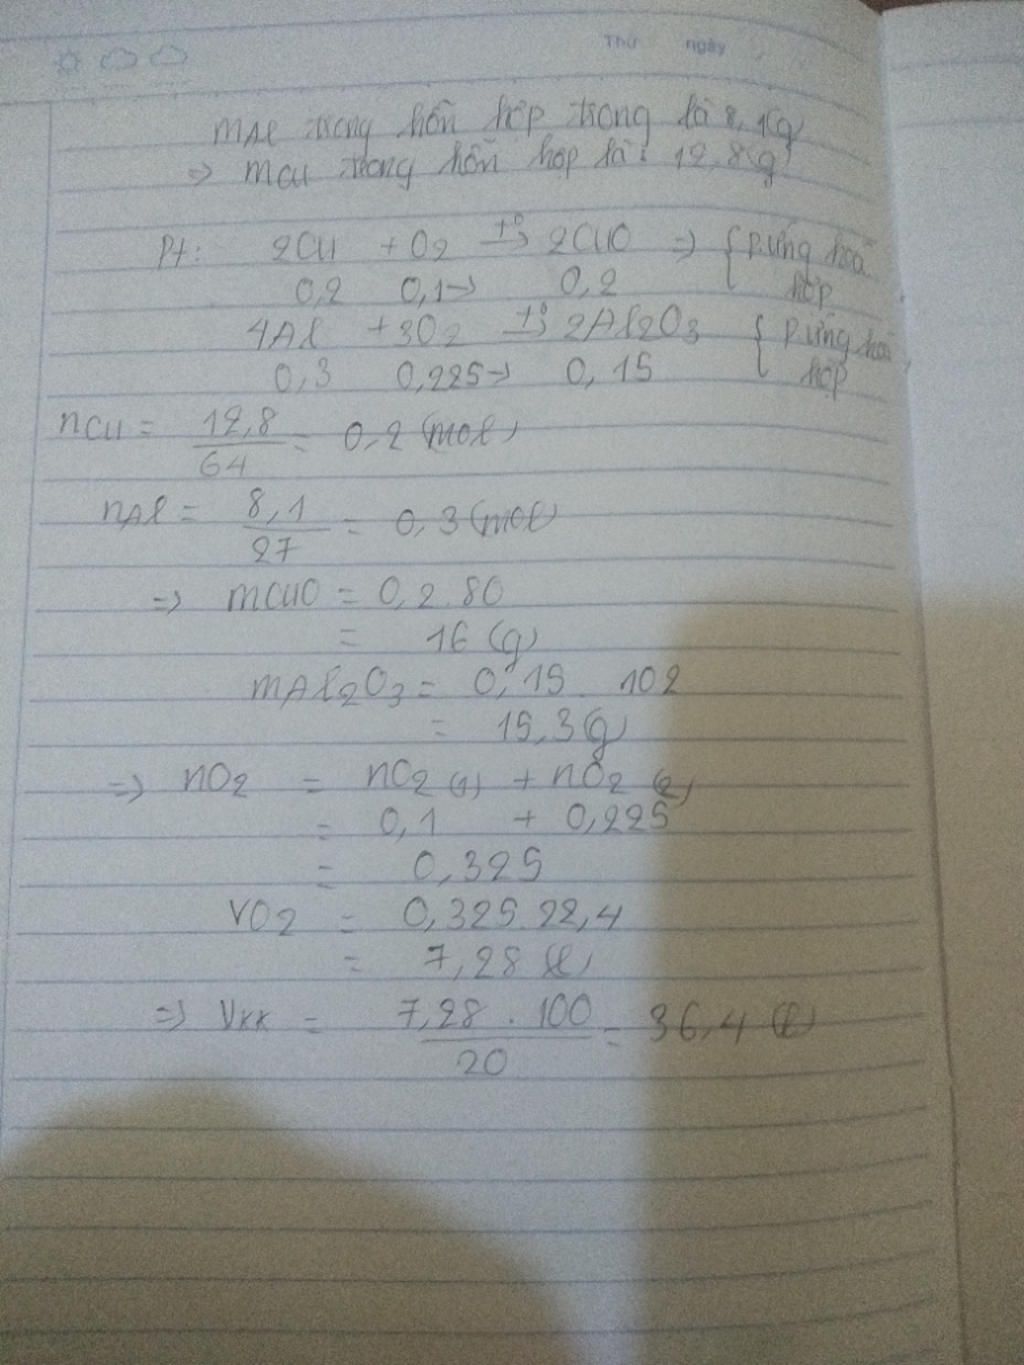 Thứ ngày
mAl trong hỗn hợp trong là 8,1(g)
=> mCu trong hỗn hợp là: 12,8(g)
Pt: 2Cu + O2 t°→ 2CuO => { P.ứng hoá
0,2 0,1→ 0,2 hợp
4Al + 3O2 t°→ 2Al2O3 { P.ứng hoá
0,3 0,225→ 0,15 hợp
nCu = 12,8/64 = 0,2 (mol)
nAl = 8,1/27 = 0,3 (mol)
=> mCuO = 0,2.80
= 16 (g)
mAl2O3 = 0,15 . 102
= 15,3(g)
=> nO2 = nO2 (1) + nO2 (2)
= 0,1 + 0,225
= 0,325
VO2 = 0,325.22,4
= 7,28 (l)
=> Vkk = 7,28 . 100/20 = 36,4 (l)